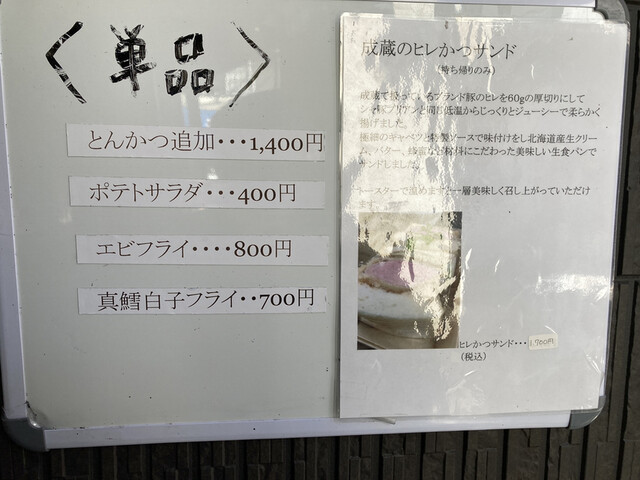 〈単品〉
とんかつ追加・・・1,400円
ポテトサラダ・・・400円
エビフライ・・・・800円
真鱈白子フライ・・700円
成蔵のヒレかつサンド
(持ち帰りのみ)
成蔵で扱っているブランド豚のヒレを60gの厚切りにして
シャ ブリアンと同じ低温からじっくりとジューシーで柔らかく
揚げました。
極細のキャベツと特製ソースで味付けをし北海道産生クリー
ム、バター、蜂蜜など材料にこだわった美味しい生食パンで
サンドしました。
トースターで温めますと一層美味しく召し上がっていただけ
ます。
ヒレかつサンド・・・1,700円
(税込)